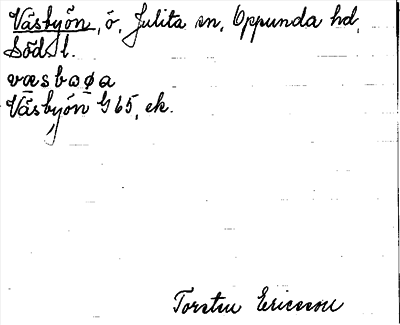 Väsbyön, ö, Julita sn, Oppunda hd,
Södl.
væsbɷøa
Väsbyön G 65, ek.
Torsten Ericsson